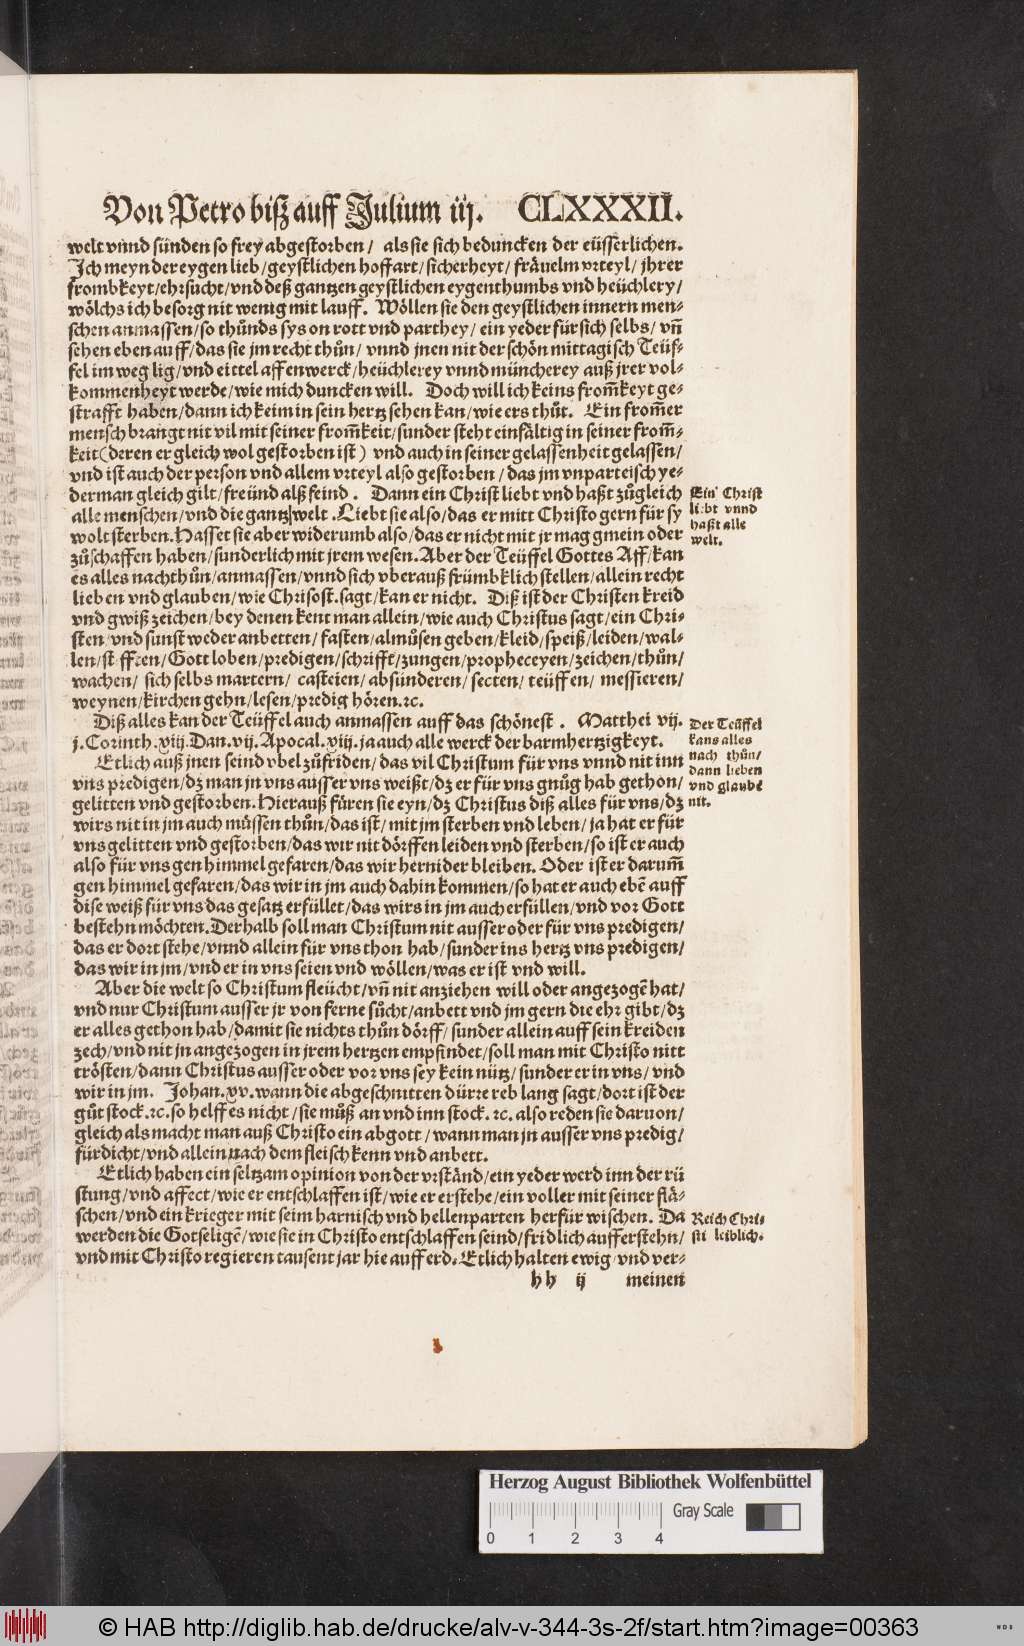 Von Petro biß auff Julium iij. CLXXXII.
welt vnnd sünden so frey abgestorben / als sie sich beduncken der eüsserlichen.
Ich meyn der eygen lieb/geystlichen hoffart/sicherheyt/frävelm vrteyl/jhrer
frombkeyt/ehrsucht/vnd deß gantzen geystlichen eygenthumbs vnd heüchlery/
wölchs ich besorg nit wenig mit lauff. Wöllen sie den geystlichen innern men-
schen anmassen/so thůnds sys on rott vnd parthey/ein yeder für sich selbs/vn̄
sehen eben auff/das sie jm recht thůn/ vnnd jnen nit der schön mittagisch Teüf-
fel im weg lig/vnd eittel affenwerck/heüchlerey vnnd müncherey auß jrer vol-
kommenheyt werde/wie mich duncken will. Doch will ich keins from̄keyt ge-
strafft haben/dann ich keim in sein hertz sehen kan/wie ers thůt. Ein from̄er
mensch brangt nit vil mit seiner from̄keit/sunder steht einfältig in seiner from̄-
keit(deren er gleich wol gestorben ist) vnd auch in seiner gelassenheit gelassen/
vnd ist auch der person vnd allem vrteyl also gestorben/das jm vnparteisch ye-
derman gleich gilt/freünd alß feind. Dann ein Christ liebt vnd haßt zůgleich
alle menschen/vnd die gantz welt. Liebt sie also/das er mitt Christo gern für sy
wolt sterben. Hasset sie aber widerumb also/das er nicht mit jr mag gmein oder
zůschaffen haben/sunderlich mit jrem wesen. Aber der Teüffel Gottes Aff/kan
es alles nachthůn/anmassen/vnnd sich vberauß frümbklich stellen/allein recht
lieben vnd glauben/wie Chrisost. sagt/kan er nicht. Diß ist der Christen kreid
vnd gwiß zeichen/bey denen kent man allein/wie auch Christus sagt/ein Chri-
sten/vnd sunst weder anbetten/fasten/almůsen geben/kleid/speiß/leiden/wal-
len/stifften/Gott loben/predigen/schrifft/zungen/propheceyen/zeichen/thůn/
wachen/ sich selbs martern/ casteien/absünderen/secten/teüffen/ messieren/
weynen/kirchen gehn/lesen/predig hören. ꝛc.
Diß alles kan der Teüffel auch anmassen auff das schönest. Matthei vij.
j. Corinth. xiij. Dan. vij. Apocal. xiij. ja auch alle werck der barmhertzigkeyt.
Etlich auß jnen seind vbel zůfriden/das vil Christum für vns vnnd nit inn
vns predigen/dz man jn vns ausser vns weißt/dz er für vns gnůg hab gethon/
gelitten vnd gestorben. Hierauß füren sie eyn/dz Christus diß alles für vns/dz
wirs nit in jm auch müssen thůn/das ist/mit jm sterben vnd leben/ja hat er für
vns gelitten vnd gestorben/das wir nit dörffen leiden vnd sterben/so ist er auch
also für vns gen himmel gefaren/das wir hernider bleiben. Oder ist er darum̄
gen himmel gefaren/das wir in jm auch dahin kommen/so hat er auch ebē auff
dise weiß für vns das gesatz erfüllet/das wirs in jm auch erfüllen/vnd vor Gott
bestehn möchten. Derhalb soll man Christum nit ausser oder für vns predigen/
das er dort stehe/vnnd allein für vns thon hab/sunder ins hertz vns predigen/
das wir in jm/vnd er in vns seien vnd wöllen/was er ist vnd will.
Aber die welt so Christum fleücht/vn̄ nit anziehen will oder angezogē hat/
vnd nur Christum ausser jr von ferne sůcht/anbett vnd jm gern die ehr gibt/dz
er alles gethon hab/damit sie nichts thůn dörff/sunder allein auff sein kreiden
zech/vnd nit jn angezogen in jrem hertzen empfindet/soll man mit Christo nitt
trösten/dann Christus ausser oder vor vns sey kein nütz/sunder er in vns/vnd
wir in jm. Johan. xv. wann die abgeschnitten dürre reb lang sagt/dort ist der
gůt stock. ꝛc. so helff es nicht/sie můß an vnd inn stock. ꝛc. also reden sie daruon/
gleich als macht man auß Christo ein abgott/wann man jn ausser vns predig/
fürdicht/vnd allein nach dem fleisch kenn vnd anbett.
Etlich haben ein seltzam opinion von der vrständ/ein yeder werd inn der rü
stung/vnd affect/wie er entschlaffen ist/wie er erstehe/ein voller mit seiner flä-
schen/vnd ein krieger mit seim harnisch vnd hellenparten herfür wischen. Da
werden die Gotseligē/wie sie in Christo entschlaffen seind/fridlich aufferstehn/
vnd mit Christo regieren tausent jar hie auff erd. Etlich halten ewig/vnd ver-
hh ij meinen
Ein Christ
liebt vnnd
haßt alle
welt.
Der Teüffel
kans alles
nach thůn/
dann lieben
vnd glaube
nit.
Reich Chri-
sti leiblich.
Herzog August Bibliothek Wolfenbüttel
Gray Scale
0 1 2 3 4
© HAB http://diglib.hab.de/drucke/alv-v-344-3s-2f/start.htm?image=00363